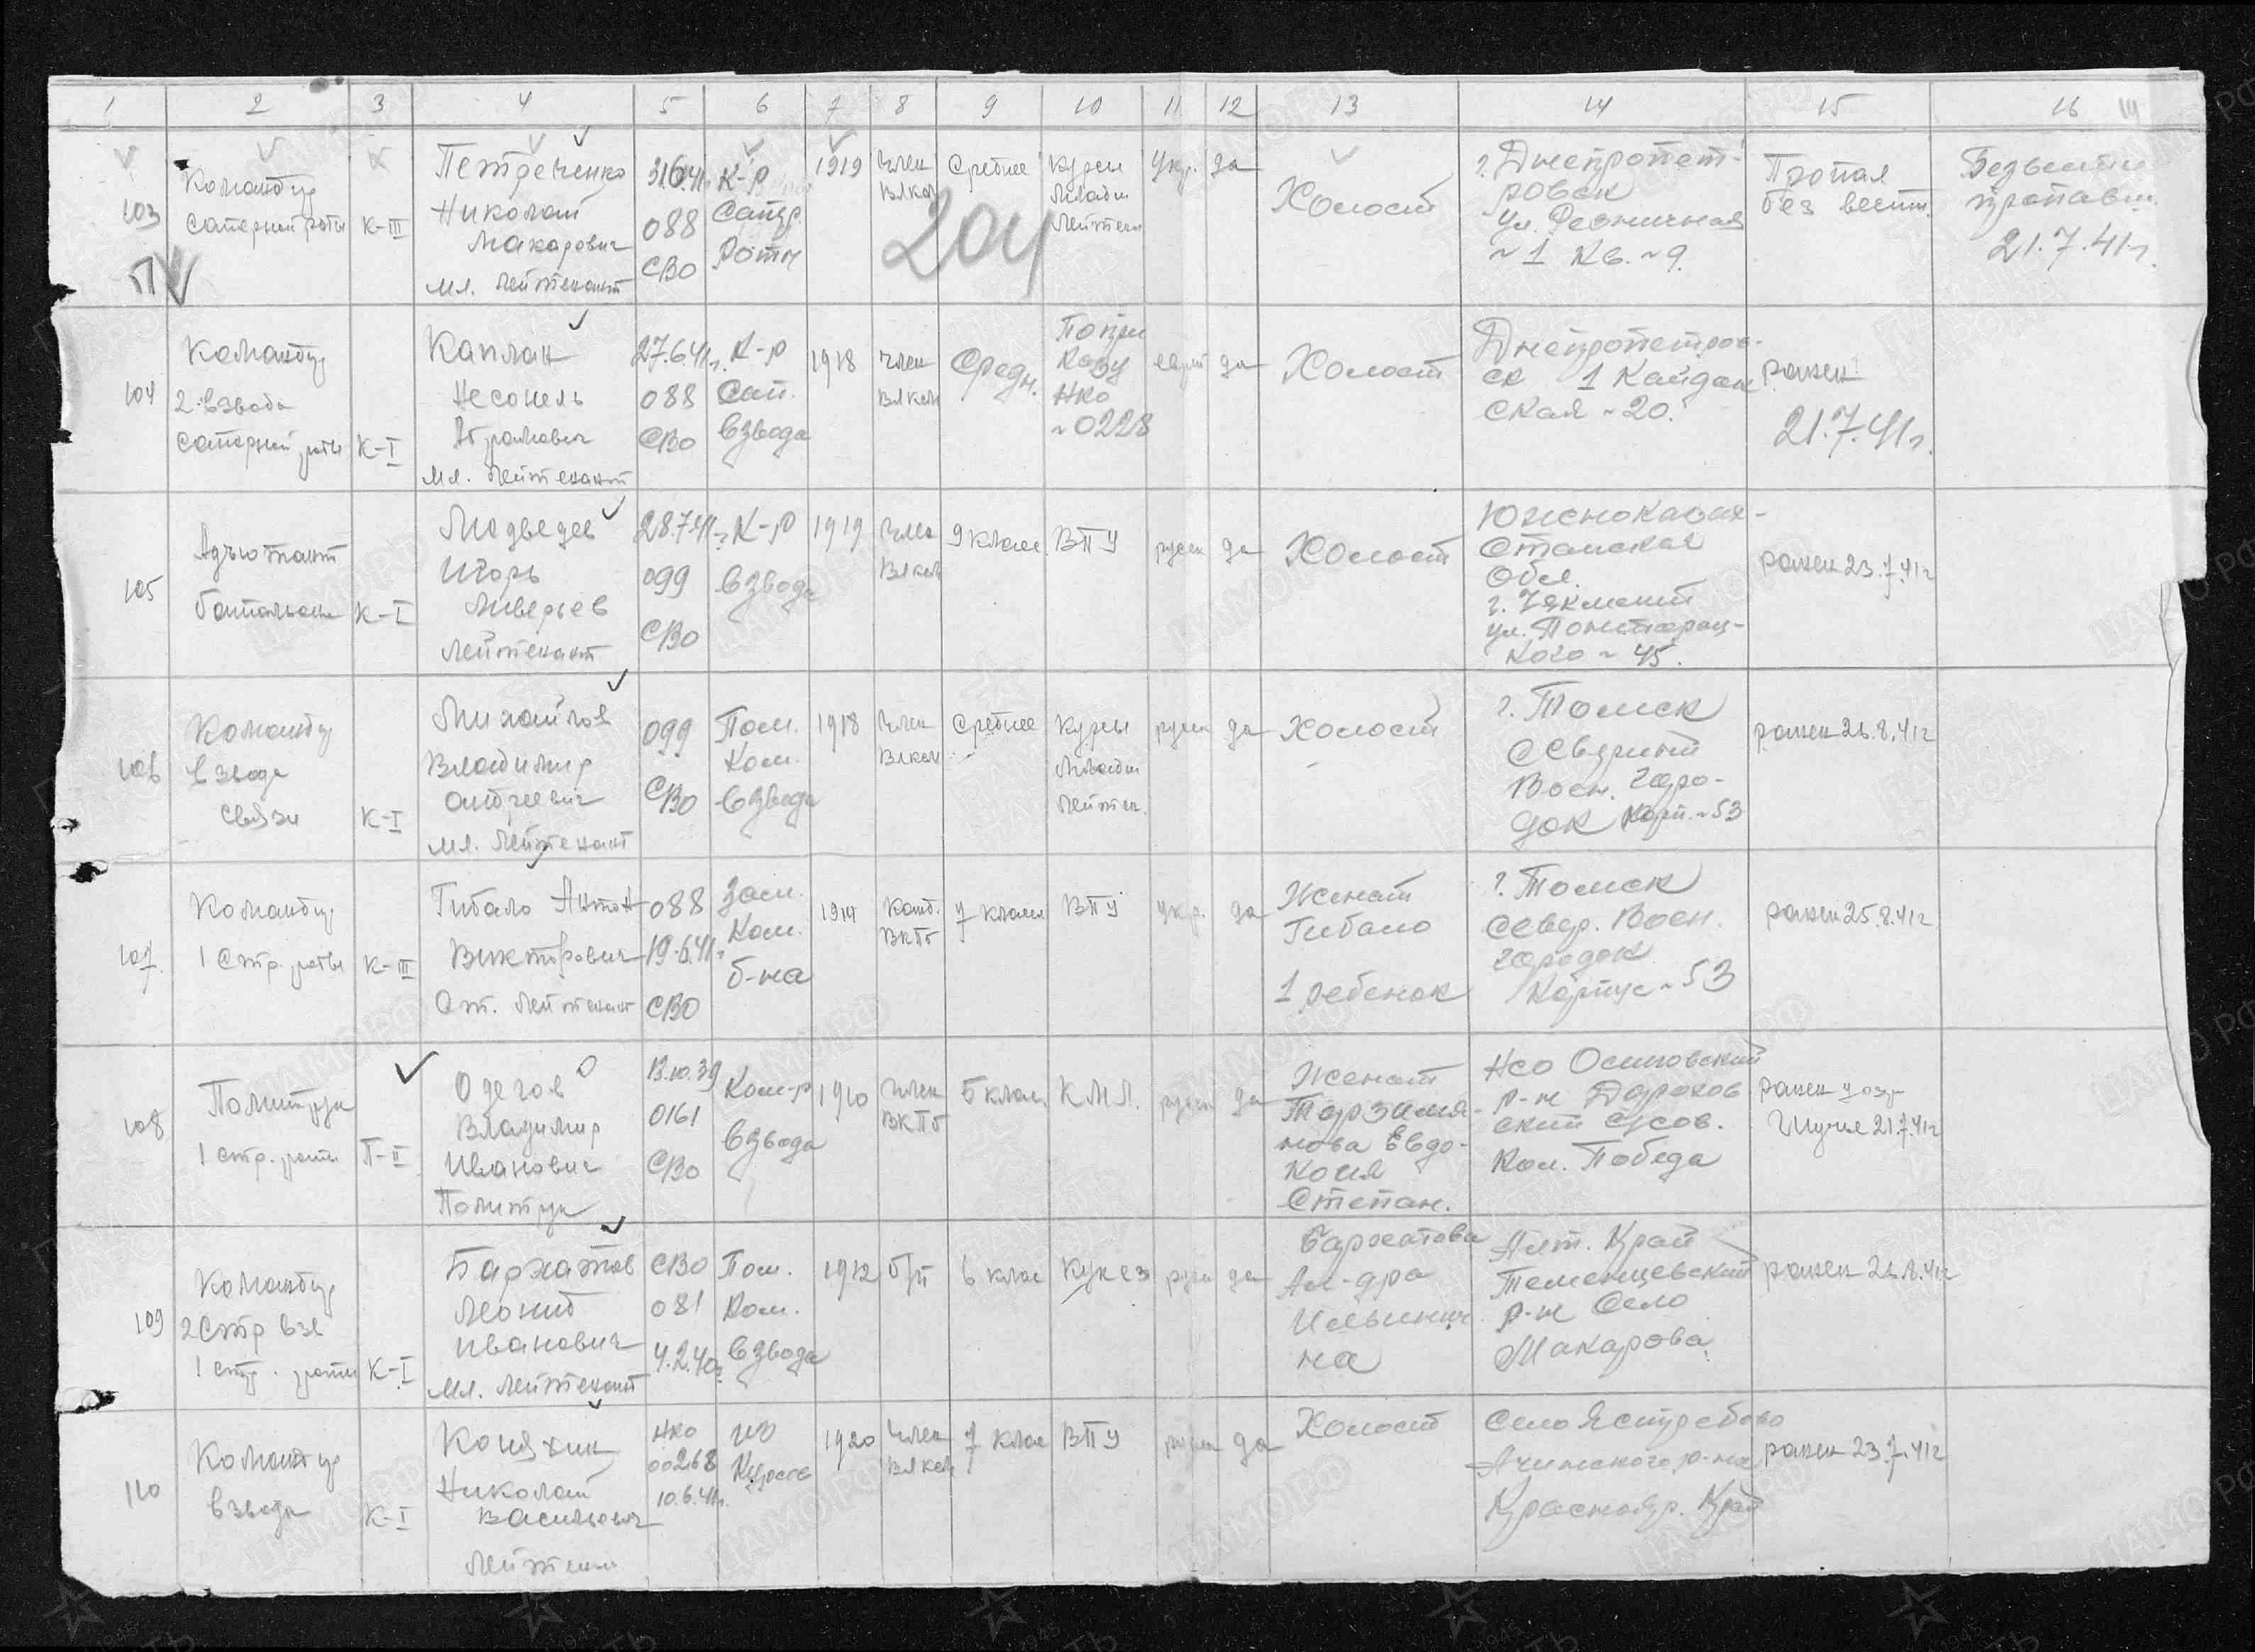 1 2 3 4 5 6 7 8 9 10 11 12 13 14 15 16
103
Командир
саперной роты
К-III
Петреченко
Николай
Макарович
мл. лейтенант
088
СВО
К-р
Сапер.
Роты
1919
Член
Влксм
Среднее
204
Курсы
младш
лейтен
Укр.
да
Холост
г. Днепропет-
ровск
~1 Кв. ~9.
Пропал
без вест.
21.7.41г.
104
Командир
2 взвода
саперной роты
К-I
Каплан
Абрамович
мл. лейтенант
27.6.41г.
088
СВО
К-р
Сап.
взвода
1918
член
Влксм
Средн.
По при
казу
НКО
~0228
еврей
да
Холост
Днепропетров-
ск 1 Кайдак
ская ~20.
ранен
21.7.41г.
105
Адъютант
батальона
К-I
Медведев
Игорь
лейтенант
28.7.41г.
099
СВО
К-р
взвода
1919
член
Влксм
9 класс.
ВПУ
русск
да
Холост
Южноказах-
станская
Обл.
г. Чимкент
~45.
ранен 23.7.41г
106
Командир
взвода
связи
К-I
Михайлов
Владимир
Андреевич
мл. лейтенант
099
СВО
Пом.
Ком.
взвода
1918
Член
Влксм
Среднее
Курсы
младш
лейтен.
русск
да
Холост
г. Томск
Северный
Воен. горо-
док Корп. ~53
ранен 26.8.41г
107.
Командир
1 стр. роты
К-III
Гибало Антон
Викторович
Ст. лейтенант
088
19.6.41г
СВО
Зам.
Ком.
б-на
1914
Канд.
ВКПб
7 класс
ВПУ
укр.
да
Женат
Гибало
1 ребенок
г. Томск
север. Воен.
городок
Корпус ~53
ранен 25.8.41г
108
Политрук
1 стр. роты
П-II
Одегов
Владимир
Иванович
Политрук
13.10.39
0161
СВО
Ком-р
взвода
1910
член
ВКПб
5 клас.
КМЛ.
русск
да
Женат
Евдо-
кия
Степан.
НСО
р-н
Кол. Победа
ранен у оз.
Щучье 21.7.41г
109
Командир
2 стр взв
1 стр. роты
К-I
Бархатов
Леонид
Иванович
мл. лейтенант
СВО
081
4.2.40г
Пом.
Ком.
взвода
1912
б/п
6 клас
русск
да
Бархатова
Ал-дра
Ильинич
на
Алт. Край
р-н Село
Макарова
ранен 26.8.41г
110
Командир
взвода
К-I
Николай
Васильевич
НКО
00268
10.6.41г.
1920
член
Влксм
7 клас
ВПУ
русск
да
Холост
Село Ястребово
Ачинского р-на
Краснояр. Край
ранен 23.7.41г